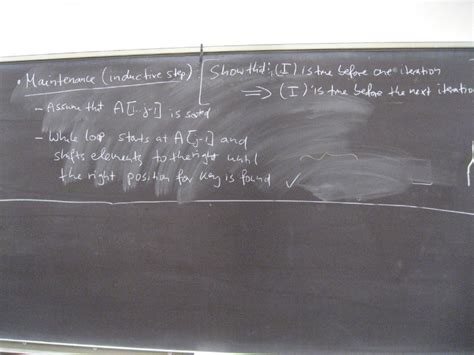 • Maintenance (inductive step):
Show that: (I) is true before one iteration
⟹ (I) is true before the next iteration
- Assume that A[1..j-1] is sorted
- While loop starts at A[j-1] and
shifts elements to the right until
the right position for key is found ✓